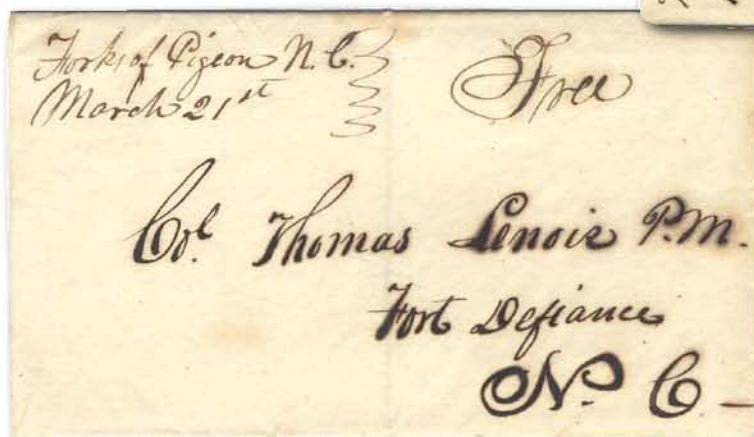 Forks of Pigeon N. C.
March 21st
Free
Col. Thomas Lenoir P.M.
Fort Defiance
N. C. —